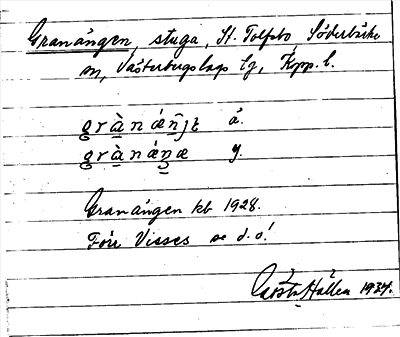 Granängen, stuga, St. Tolfsbo Söderbärke
sn, Västerbergslags tg, Kopp. l.
å.
y.
Granängen kb 1928.
Förr Visses se d. o!
Gösta Hallen 1934.